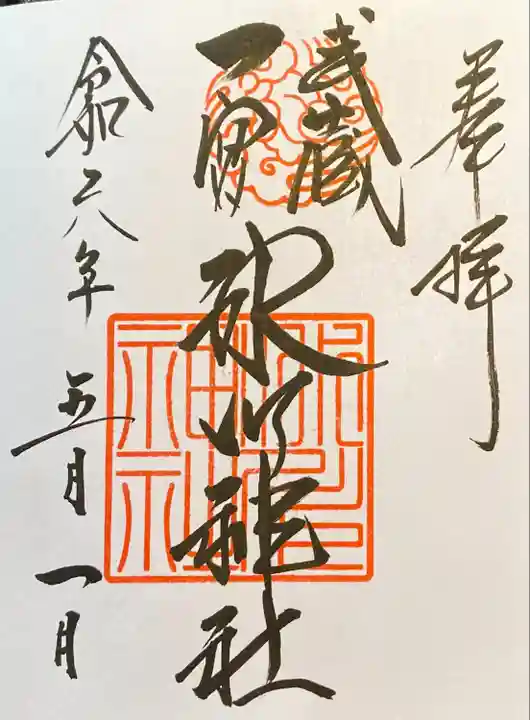 奉拝
武蔵
一宮
氷川神社
令和六年五月一日